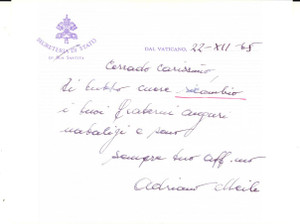 SEGRETERIA DI STATO
DI SUA SANTITÀ
DAL VATICANO, 22-XII-65
Corrado carissimo,
Di tutto cuore ricambio
i tuoi fraterni auguri
natalizi e sono
sempre tuo aff.mo
Adriano